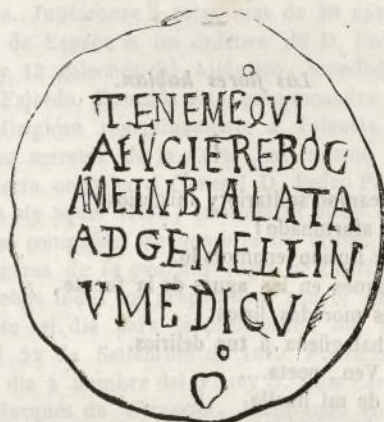 TENEMEQVI
AFVGIEREBOC
AMEINBIALATA
ADGEMELLIN
VMEDICV